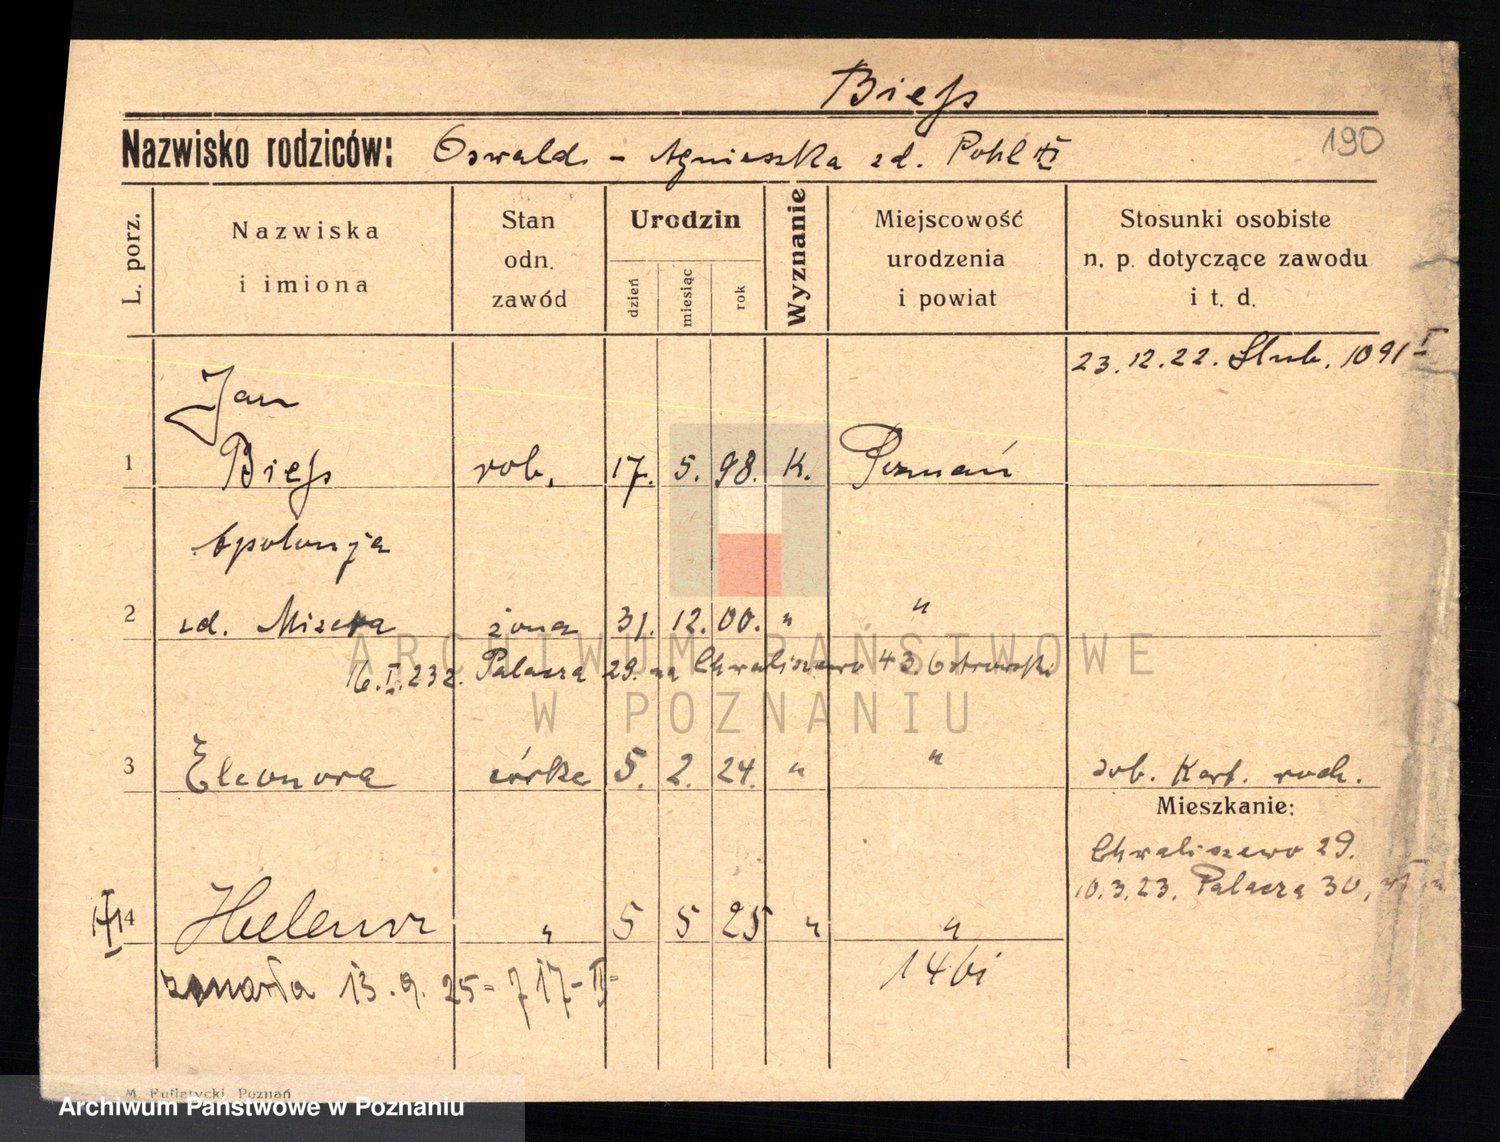 Biess
190
Nazwisko rodziców: Oswald - Agnieszka zd. Pohl
L. porz.
Nazwiska i imiona
Stan odn. zawód
Urodzin
dzień
miesiąc
rok
Wyznanie
Miejscowość urodzenia i powiat
Stosunki osobiste n. p. dotyczące zawodu i t. d.
23.12.22. Ślub. 1091 I
Jan
1 Biess rob. 17. 5. 98. K. Poznań
Apolonja
2 zd. Mizera żona 31. 12. 00. " "
16.I.23 z Palacza 29. na Chwaliszewo 43. Ostrowski
3 Eleonora córka 5. 2. 24. " " zob. Kart. rodz.
Mieszkanie:
Chwaliszewo 29.
10.3.23. Palacza 30,
4 Helena " 5 5 25 " "
zmarła 13.9.25 = 717-II=
14 bi
M. Putiatycki, Poznań
ARCHIWUM PAŃSTWOWE
W POZNANIU
Archiwum Państwowe w Poznaniu